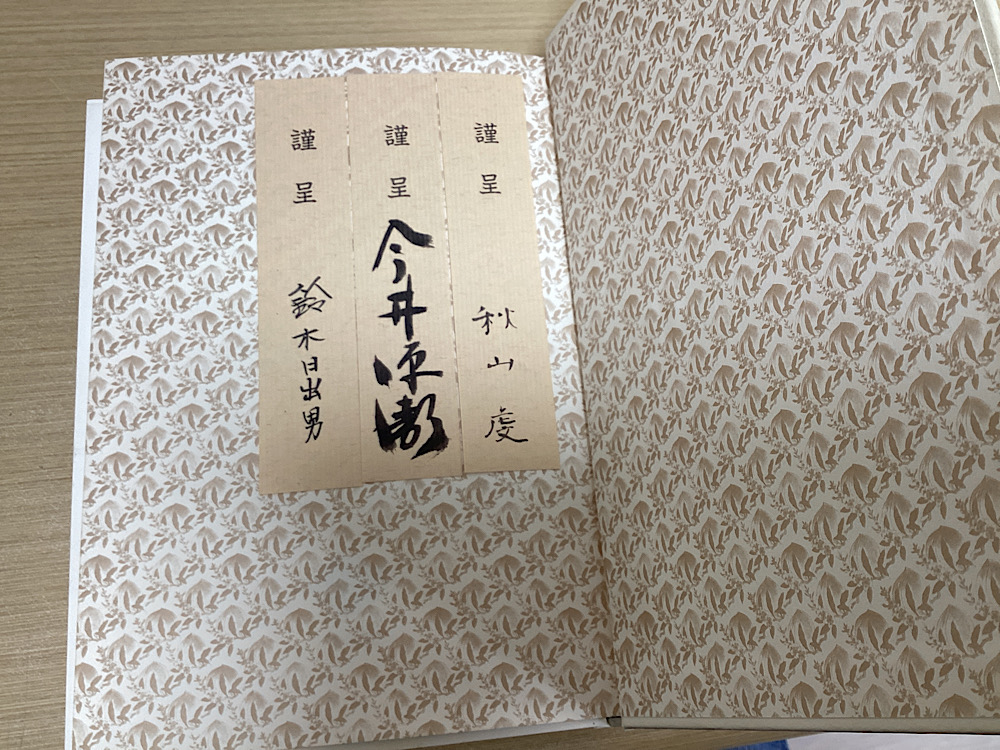 謹呈
秋山虔
謹呈
今井源衛
謹呈
鈴木日出男